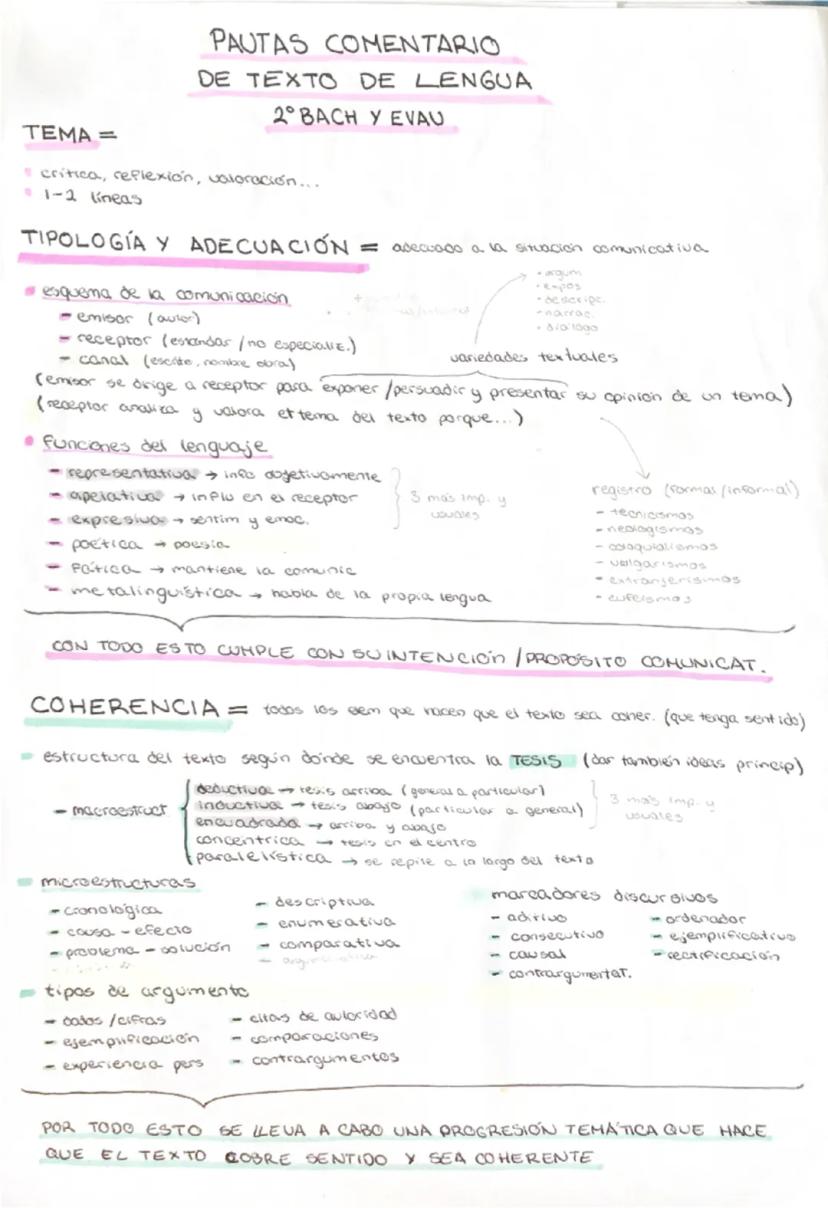 PAUTAS COMENTARIO
DE TEXTO DE LENGUA
2º BACH Y EVAU
TEMA =
crítica, reflexión, valoración...
1-2 líneas
TIPOLOGÍA Y ADECUACIÓN = adecuado a la situación comunicativa
esquema de la comunicación
- emisor (autor)
- receptor (estándar / no especialit.)
- canal (escrito, nombre obra)
• argum
• expos
• descripc.
• narrac.
• diálogo
variedades textuales
(emisor se dirige a receptor para exponer / persuadir y presentar su opinión de un tema)
(receptor analiza y valora el tema del texto porque...)
funciones del lenguaje
- representativa → info objetivamente
- apelativa → influ en el receptor
- expresiva → sentim y emoc.
3 más imp. y
usuales
- poética → poesía
- fática → mantiene la comunic
- metalingüística → habla de la propia lengua
registro (formas / informal)
- tecnicismos
- neologismos
- coloquialismos
- vulgarismos
- extranjerismos
- eufeismos
CON TODO ESTO CUMPLE CON SU INTENCIÓN / PROPÓSITO COMUNICAT.
COHERENCIA = todos los elem que hacen que el texto sea coher. (que tenga sentido)
estructura del texto según dónde se encuentra la TESIS (dar también ideas princip)
- macroestruct
deductiva → tesis arriba (general a particular)
inductiva → tesis abajo (particular a general)
encuadrada → arriba y abajo
3 más imp. y
usuales
concentrica → tesis en el centro
paralelística → se repite a lo largo del texto
microestructuras
- cronológica
- causa - efecto
- problema - solución
- descriptiva
- enumerativa
- comparativa
marcadores discursivos
- aditivo
- consecutivo
- causal
- contrargumentat.
- ordenador
- ejemplificativo
- rectificación
tipos de argumento
- datos / cifras
- ejemplificación
- experiencia pers
- citas de autoridad
- comparaciones
- contrargumentos
POR TODO ESTO SE LLEVA A CABO UNA PROGRESIÓN TEMÁTICA QUE HACE
QUE EL TEXTO COBRE SENTIDO Y SEA COHERENTE